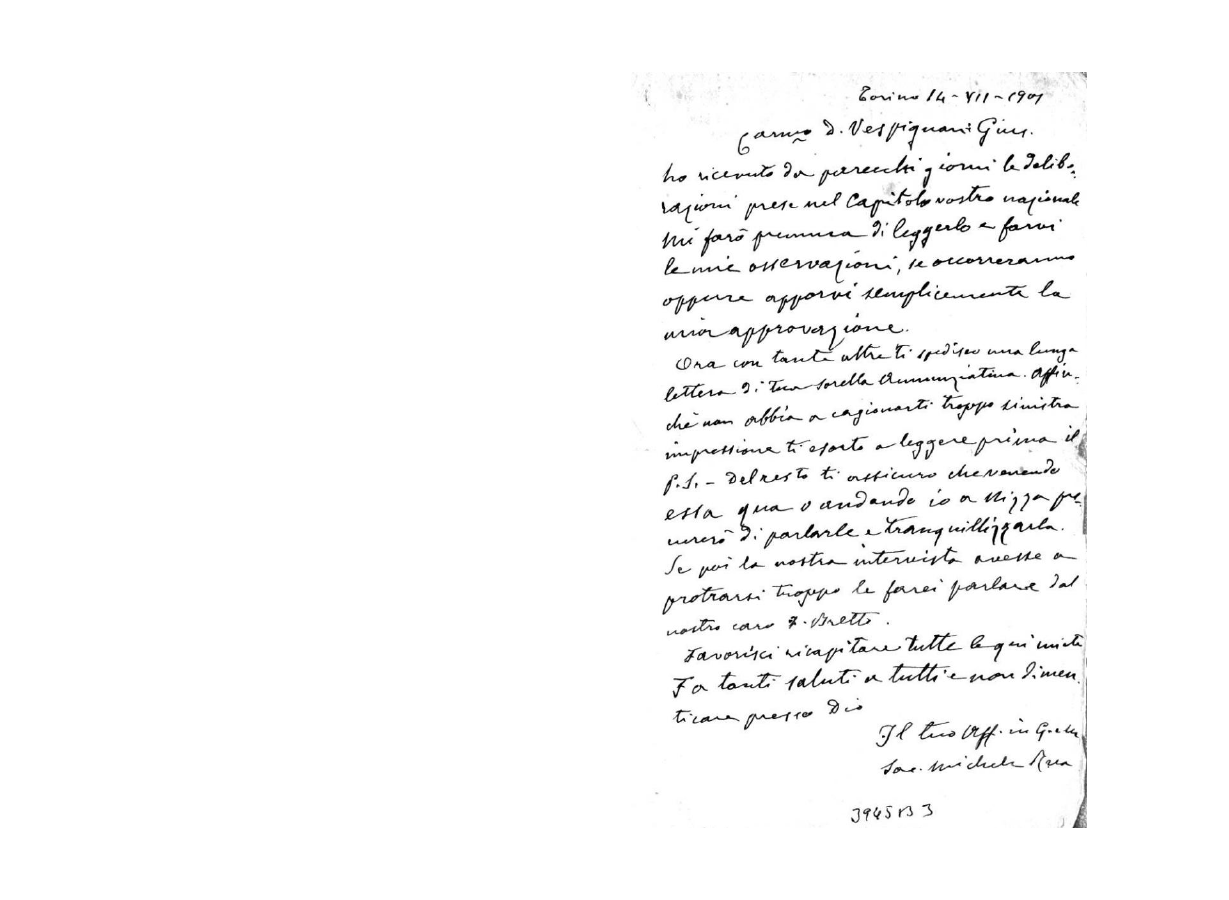 Torino 14-VII-1901
Carmo D. Vespignani Gius.
ho ricevuto da parecchi giorni le delibe-
razioni prese nel Capitolo vostro nazionale
Mi farò premura di leggerlo e farvi
le mie osservazioni, se occorreranno
oppure apporvi semplicemente la
mia approvazione.
Ora con tante altre ti spedisco una lunga
lettera di tua sorella Annunziatina. Affin-
chè non abbia a cagionarti troppo sinistra
impressione ti esorto a leggere prima il
P.S. - Del resto ti assicuro che venendo
essa qua o andando io a Nizza pro-
curerò di parlarle e tranquillizzarla.
Se poi la nostra intervista avesse a
protrarsi troppo le farei parlare dal
nostro caro D. Bretto.
Favorisci ricapitare tutte le qui unite
Fa tanti saluti a tutti e non dimen-
ticare presso Dio
Il tuo Aff. in G. e M.
Sac. Michele Rua
3945 B 3